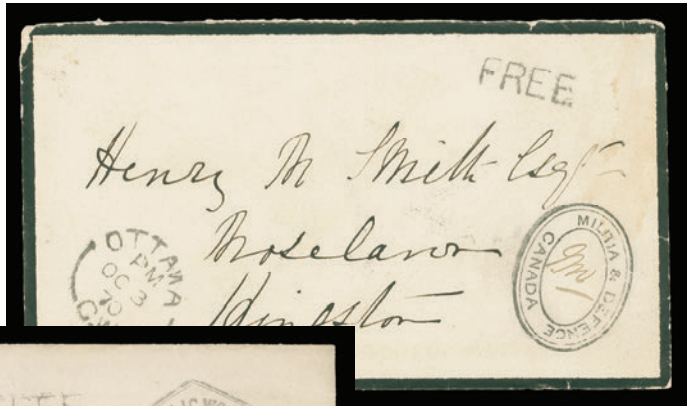 FREE
Henry M Smith Esqr
Roselawn
Kingston
OTTAWA
PM
OC 3
70
C.W
MILITIA & DEFENCE
CANADA